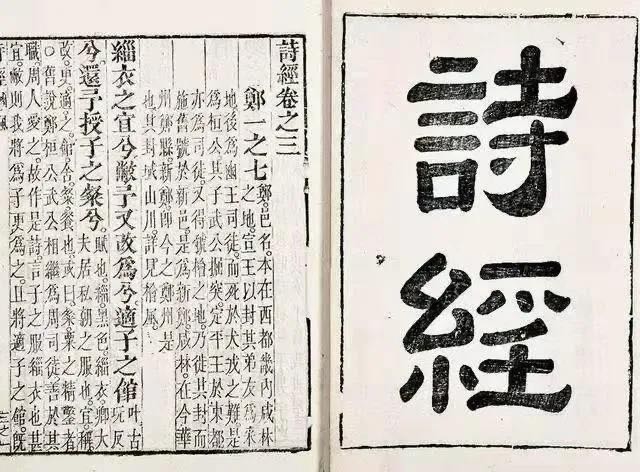 詩經
詩經卷之三
鄭一之七
鄭邑名。本在西都畿內咸林
之地。宣王以封其弟友爲采
地後爲幽王司徒。而死於犬戎之難。是
爲桓公。其子武公掘突定平王於東都
亦爲司徒。又得虢檜之地。乃徙其封而
施舊號於新邑。是爲新鄭。咸林在今華
州鄭縣。新鄭即今之鄭州是
也其封域山川。詳見檜風。
緇衣之宜兮敝予又改爲兮適子之館
叶古
玩反
兮還予授子之粲兮
賦也。緇黑色。緇衣。卿大
夫居私朝之服也。宜。稱
改。更。適。之。館。舍。粲。餐也。或曰粲。粟之精鑿者
○舊說鄭桓公武公相繼爲周司徒善於其
職。周人愛之。故作是詩。言子之服緇衣也甚
宜。敝則我將爲子更爲之。且將適子之館。既